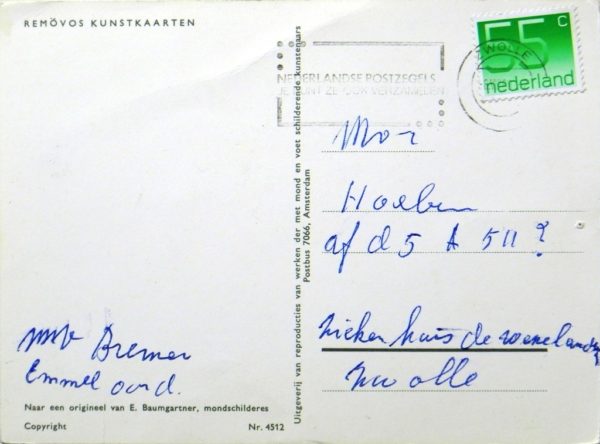 REMÖVOS KUNSTKAARTEN
ZWOLLE
55 c
nederland
NEDERLANDSE POSTZEGELS
JE KUNT ZE OOK VERZAMELEN
Uitgeverij van reproducties van werken der met mond en voet schilderende kunstenaars
Postbus 7066, Amsterdam
afd 5 A 511?
Ziekenhuis de Weezenlanden
Zwolle
Bremer
Emmeloord.
Naar een origineel van E. Baumgartner, mondschilderes
Copyright
Nr. 4512